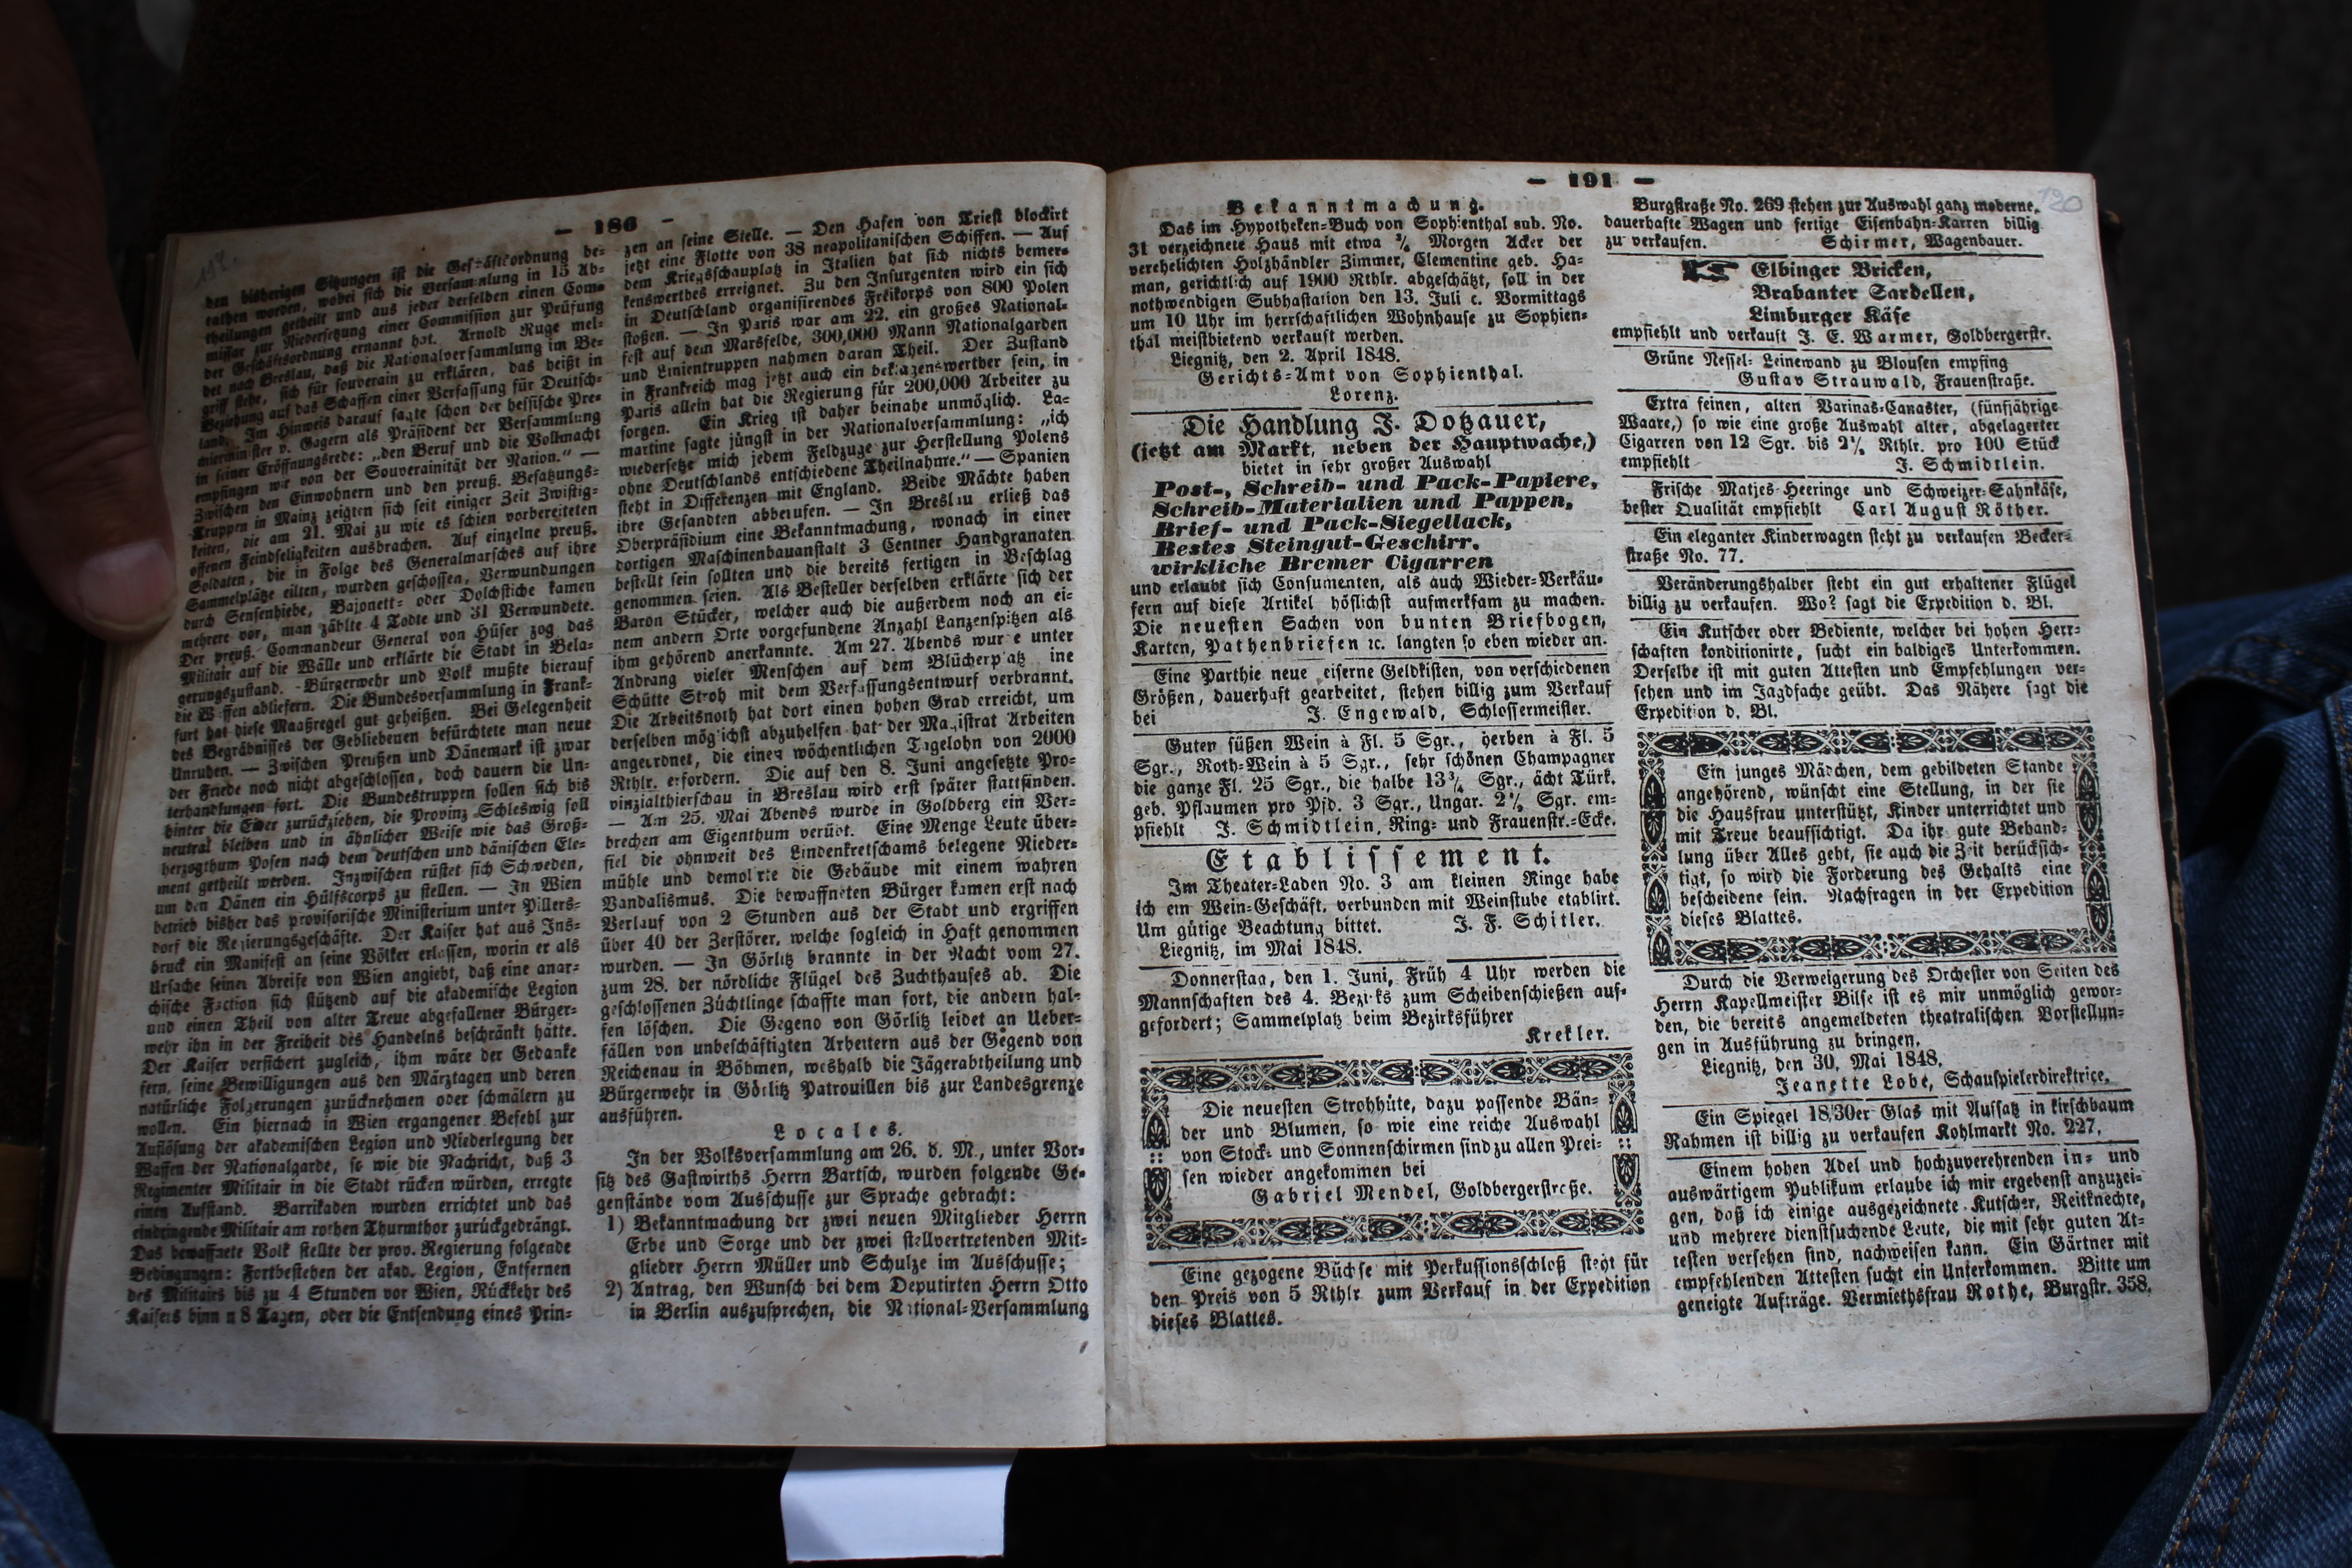 — 186 —
den bisherigen Sitzungen ist die Geschäftsordnung be-
rathen worden, wobei sich die Versammlung in 15 Ab-
theilungen getheilt und aus jeder derselben einen Com-
missar zur Niedersetzung einer Commission zur Prüfung
der Geschäftsordnung ernannt hat. Arnold Ruge mel-
det nach Breslau, daß die Nationalversammlung im Be-
griff stehe, sich für souverain zu erklären, das heißt in
Beziehung auf das Schaffen einer Verfassung für Deutsch-
land. Im Hinweis darauf sagte schon der hessische Pre-
mierminister v. Gagern als Präsident der Versammlung
in seiner Eröffnungsrede: „den Beruf und die Vollmacht
empfingen wir von der Souverainität der Nation.“ —
Zwischen den Einwohnern und den preuß. Besatzungs-
Truppen in Mainz zeigten sich seit einiger Zeit Zwistig-
keiten, die am 21. Mai zu wie es schien vorbereiteten
offenen Feindseligkeiten ausbrachen. Auf einzelne preuß.
Soldaten, die in Folge des Generalmarsches auf ihre
Sammelplätze eilten, wurden geschossen, Verwundungen
durch Sensenhiebe, Bajonett- oder Dolchstiche kamen
mehrere vor, man zählte 4 Todte und 31 Verwundete.
Der preuß. Commandeur General von Hüser zog das
Militair auf die Wälle und erklärte die Stadt in Bela-
gerungszustand. Bürgerwehr und Volk mußte hierauf
die Waffen abliefern. Die Bundesversammlung in Frank-
furt hat diese Maaßregel gut geheißen. Bei Gelegenheit
des Begräbnisses der Gebliebenen befürchtete man neue
Unruhen. — Zwischen Preußen und Dänemark ist zwar
der Friede noch nicht abgeschlossen, doch dauern die Un-
terhandlungen fort. Die Bundestruppen sollen sich bis
hinter die Eider zurückziehen, die Provinz Schleswig soll
neutral bleiben und in ähnlicher Weise wie das Groß-
herzogthum Posen nach dem deutschen und dänischen Ele-
ment getheilt werden. Inzwischen rüstet sich Schweden,
um den Dänen ein Hülfscorps zu stellen. — In Wien
betrieb bisher das provisorische Ministerium unter Pillers-
dorf die Regierungsgeschäfte. Der Kaiser hat aus Ins-
bruck ein Manifest an seine Völker erlassen, worin er als
Ursache seiner Abreise von Wien angiebt, daß eine anar-
chische Faction sich stützend auf die akademische Legion
und einen Theil von alter Treue abgefallener Bürger-
wehr ihn in der Freiheit des Handelns beschränkt hätte.
Der Kaiser versichert zugleich, ihm wäre der Gedanke
fern, seine Bewilligungen aus den Märztagen und deren
natürliche Folgerungen zurücknehmen oder schmälern zu
wollen. Ein hiernach in Wien ergangener Befehl zur
Auflösung der akademischen Legion und Niederlegung der
Waffen der Nationalgarde, so wie die Nachricht, daß 3
Regimenter Militair in die Stadt rücken würden, erregte
einen Aufstand. Barrikaden wurden errichtet und das
eindringende Militair am rothen Thurmthor zurückgedrängt.
Das bewaffnete Volk stellte der prov. Regierung folgende
Bedingungen: Fortbestehen der akad. Legion, Entfernen
des Militairs bis zu 4 Stunden vor Wien, Rückkehr des
Kaisers binnen 8 Tagen, oder die Entsendung eines Prin-
zen an seine Stelle. — Den Hafen von Triest blockirt
jetzt eine Flotte von 38 neapolitanischen Schiffen. — Auf
dem Kriegsschauplatz in Italien hat sich nichts bemer-
kenswerthes ereignet. Zu den Insurgenten wird ein sich
in Deutschland organisirendes Freikorps von 800 Polen
stoßen. — In Paris war am 22. ein großes National-
fest auf dem Marsfelde, 300,000 Mann Nationalgarden
und Linientruppen nahmen daran Theil. Der Zustand
in Frankreich mag jetzt auch ein beklagenswerther sein, in
Paris allein hat die Regierung für 200,000 Arbeiter zu
sorgen. Ein Krieg ist daher beinahe unmöglich. La-
martine sagte jüngst in der Nationalversammlung: „ich
wiedersetze mich jedem Feldzuge zur Herstellung Polens
ohne Deutschlands entschiedene Theilnahme.“ — Spanien
steht in Differenzen mit England. Beide Mächte haben
ihre Gesandten abberufen. — In Breslau erließ das
Oberpräsidium eine Bekanntmachung, wonach in einer
dortigen Maschinenbauanstalt 3 Centner Handgranaten
bestellt sein sollten und die bereits fertigen in Beschlag
genommen seien. Als Besteller derselben erklärte sich der
Baron Stücker, welcher auch die außerdem noch an ei-
nem andern Orte vorgefundene Anzahl Lanzenspitzen als
ihm gehörend anerkannte. Am 27. Abends wurde unter
Andrang vieler Menschen auf dem Blücherplatz ine
Schütte Stroh mit dem Verfassungsentwurf verbrannt.
Die Arbeitsnoth hat dort einen hohen Grad erreicht, um
derselben möglichst abzuhelfen hat der Magistrat Arbeiten
angeordnet, die einen wöchentlichen Tagelohn von 2000
Rthlr. erfordern. Die auf den 8. Juni angesetzte Pro-
vinzialthierschau in Breslau wird erst später stattfinden.
— Am 25. Mai Abends wurde in Goldberg ein Ver-
brechen am Eigenthum verübt. Eine Menge Leute über-
fiel die ohnweit des Lindenkretschams belegene Nieder-
mühle und demolirte die Gebäude mit einem wahren
Vandalismus. Die bewaffneten Bürger kamen erst nach
Verlauf von 2 Stunden aus der Stadt und ergriffen
über 40 der Zerstörer, welche sogleich in Haft genommen
wurden. — In Görlitz brannte in der Nacht vom 27.
zum 28. der nördliche Flügel des Zuchthauses ab. Die
geschlossenen Züchtlinge schaffte man fort, die andern hal-
fen löschen. Die Gegend von Görlitz leidet an Ueber-
fällen von unbeschäftigten Arbeitern aus der Gegend von
Reichenau in Böhmen, weshalb die Jägerabtheilung und
Bürgerwehr in Görlitz Patrouillen bis zur Landesgrenze
ausführen.
Locales.
In der Volksversammlung am 26. d. M., unter Vor-
sitz des Gastwirths Herrn Bartsch, wurden folgende Ge-
genstände vom Ausschusse zur Sprache gebracht:
1) Bekanntmachung der zwei neuen Mitglieder Herrn
Erbe und Sorge und der zwei stellvertretenden Mit-
glieder Herrn Müller und Schulze im Ausschusse;
2) Antrag, den Wunsch bei dem Deputirten Herrn Otto
in Berlin auszusprechen, die National-Versammlung
— 191 —
120
Bekanntmachung.
Das im Hypotheken-Buch von Sophienthal sub. No.
31 verzeichnete Haus mit etwa ¾ Morgen Acker der
verehelichten Holzhändler Zimmer, Clementine geb. Ha-
man, gerichtlich auf 1900 Rthlr. abgeschätzt, soll in der
nothwendigen Subhastation den 13. Juli c. Vormittags
um 10 Uhr im herrschaftlichen Wohnhause zu Sophien-
thal meistbietend verkauft werden.
Liegnitz, den 2. April 1848.
Gerichts-Amt von Sophienthal.
Lorenz.
Die Handlung J. Dotzauer,
(jetzt am Markt, neben der Hauptwache,)
bietet in sehr großer Auswahl
Post-, Schreib- und Pack-Papiere,
Schreib-Materialien und Pappen,
Brief- und Pack-Siegellack,
Bestes Steingut-Geschirr.
wirkliche Bremer Cigarren
und erlaubt sich Consumenten, als auch Wieder-Verkäu-
fern auf diese Artikel höflichst aufmerksam zu machen.
Die neuesten Sachen von bunten Briefbogen,
Karten, Pathenbriefen ꝛc. langten so eben wieder an.
Eine Parthie neue eiserne Geldkisten, von verschiedenen
Größen, dauerhaft gearbeitet, stehen billig zum Verkauf
bei J. Engewald, Schlossermeister.
Guten süßen Wein à Fl. 5 Sgr., herben à Fl. 5
Sgr., Roth-Wein à 5 Sgr., sehr schönen Champagner
die ganze Fl. 25 Sgr., die halbe 13¾ Sgr., ächt Türk.
geb. Pflaumen pro Pfd. 3 Sgr., Ungar. 2½ Sgr. em-
pfiehlt J. Schmidtlein, Ring- und Frauenstr.-Ecke.
Etablissement.
Im Theater-Laden No. 3 am kleinen Ringe habe
ich ein Wein-Geschäft, verbunden mit Weinstube etablirt.
Um gütige Beachtung bittet. J. F. Schitler.
Liegnitz, im Mai 1848.
Donnerstag, den 1. Juni, Früh 4 Uhr werden die
Mannschaften des 4. Bezirks zum Scheibenschießen auf-
gefordert; Sammelplatz beim Bezirksführer
Krekler.
Die neuesten Strohhüte, dazu passende Bän-
der und Blumen, so wie eine reiche Auswahl
von Stock- und Sonnenschirmen sind zu allen Prei-
sen wieder angekommen bei
Gabriel Mendel, Goldbergerstraße.
Eine gezogene Büchse mit Perkussionsschloß steht für
den Preis von 5 Rthlr. zum Verkauf in der Expedition
dieses Blattes.
Burgstraße No. 269 stehen zur Auswahl ganz moderne,
dauerhafte Wagen und fertige Eisenbahn-Karren billig
zu verkaufen. Schirmer, Wagenbauer.
Elbinger Bricken,
Brabanter Sardellen,
Limburger Käse
empfiehlt und verkauft J. E. Warmer, Goldbergerstr.
Grüne Nessel-Leinewand zu Blousen empfing
Gustav Strauwald, Frauenstraße.
Extra feinen, alten Varinas-Canaster, (fünfjährige
Waare,) so wie eine große Auswahl alter, abgelagerter
Cigarren von 12 Sgr. bis 2½ Rthlr. pro 100 Stück
empfiehlt J. Schmidtlein.
Frische Matjes-Heeringe und Schweizer-Sahnkäse,
bester Qualität empfiehlt Carl August Röther.
Ein eleganter Kinderwagen steht zu verkaufen Becker-
straße No. 77.
Veränderungshalber steht ein gut erhaltener Flügel
billig zu verkaufen. Wo? sagt die Expedition d. Bl.
Ein Kutscher oder Bediente, welcher bei hohen Herr-
schaften konditionirte, sucht ein baldiges Unterkommen.
Derselbe ist mit guten Attesten und Empfehlungen ver-
sehen und im Jagdfache geübt. Das Nähere sagt die
Expedition d. Bl.
Ein junges Mädchen, dem gebildeten Stande
angehörend, wünscht eine Stellung, in der sie
die Hausfrau unterstützt, Kinder unterrichtet und
mit Treue beaufsichtigt. Da ihr gute Behand-
lung über Alles geht, sie auch die Zeit berücksich-
tigt, so wird die Forderung des Gehalts eine
bescheidene sein. Nachfragen in der Expedition
dieses Blattes.
Durch die Verweigerung des Orchester von Seiten des
Herrn Kapellmeister Bilse ist es mir unmöglich gewor-
den, die bereits angemeldeten theatralischen Vorstellun-
gen in Ausführung zu bringen.
Liegnitz, den 30. Mai 1848.
Jeanette Lobe, Schauspielerdirektrice.
Ein Spiegel 18/30er Glas mit Aufsatz in kirschbaum
Rahmen ist billig zu verkaufen Kohlmarkt No. 227.
Einem hohen Adel und hochzuverehrenden in- und
auswärtigem Publikum erlaube ich mir ergebenst anzuzei-
gen, daß ich einige ausgezeichnete Kutscher, Reitknechte,
und mehrere dienstsuchende Leute, die mit sehr guten At-
testen versehen sind, nachweisen kann. Ein Gärtner mit
empfehlenden Attesten sucht ein Unterkommen. Bitte um
geneigte Aufträge. Vermiethsfrau Rothe, Burgstr. 358.